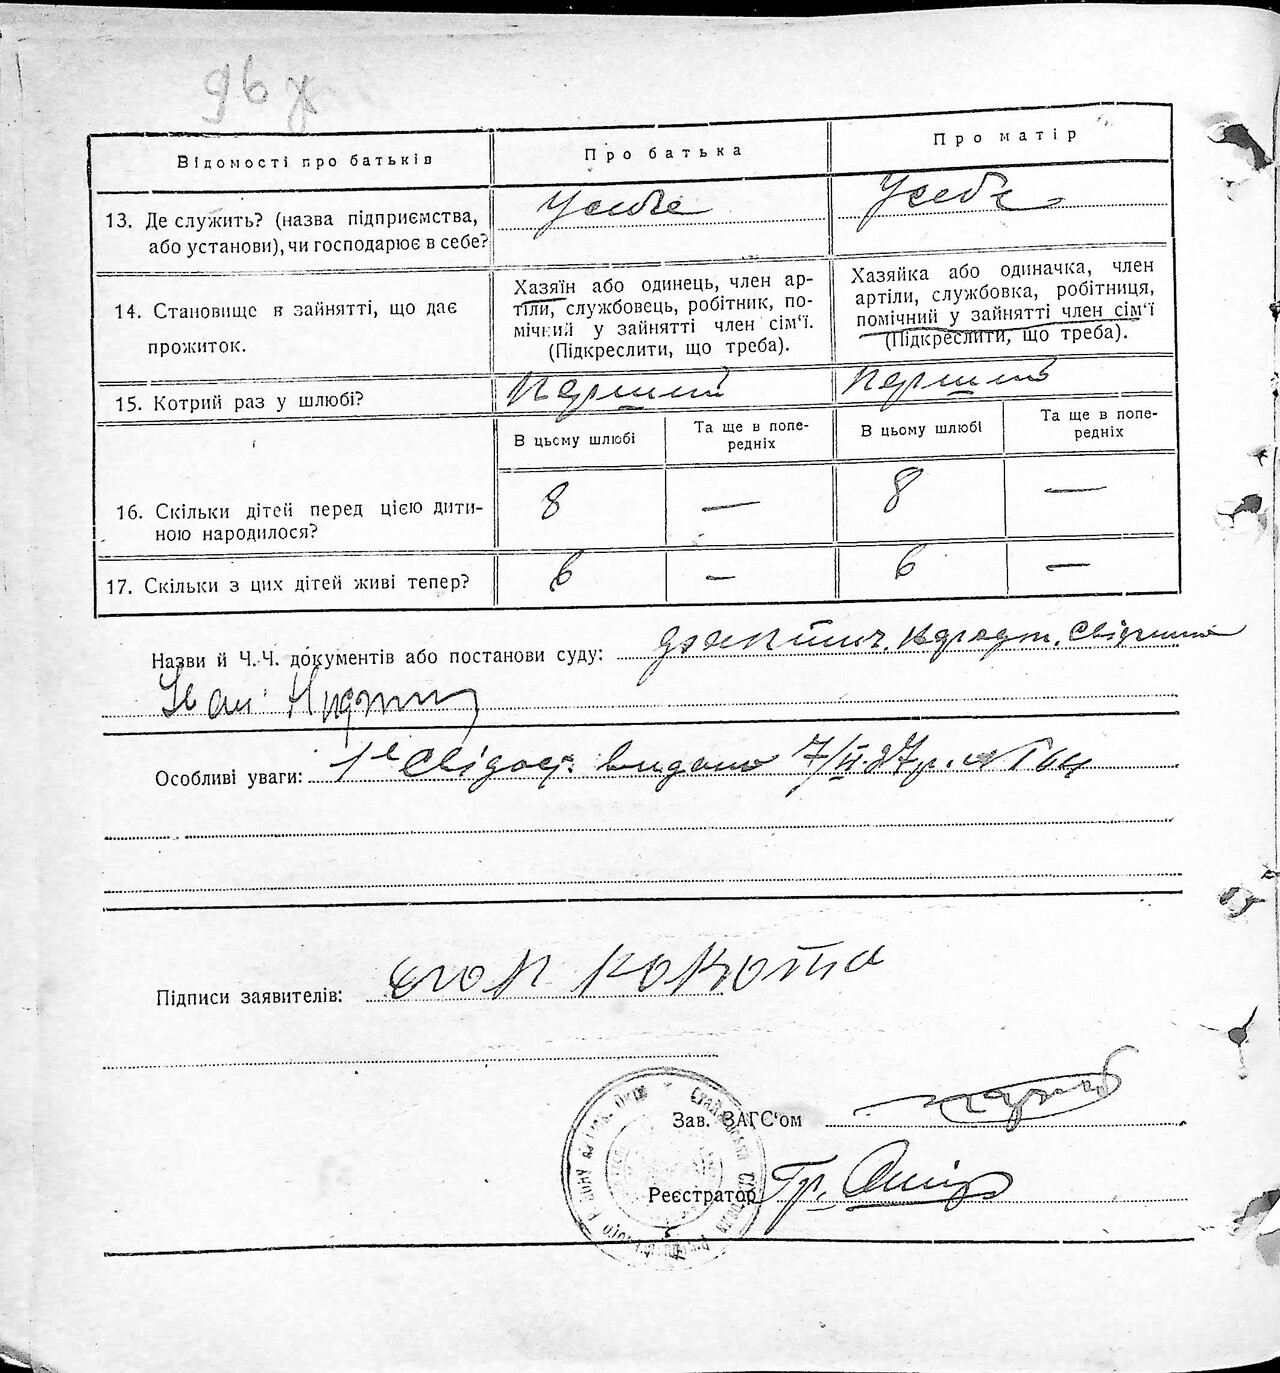 96
Відомості про батьків
Про батька
Про матір
13. Де служить? (назва підприємства, або установи), чи господарює в себе?
Усебе
Усебе
14. Становище в зайнятті, що дає прожиток.
Хазяїн або одинець, член ар-
тіли, службовець, робітник, по-
мічний у зайнятті член сім'ї.
(Підкреслити, що треба).
Хазяйка або одиначка, член
артіли, службовка, робітниця,
помічний у зайнятті член сім'ї
(Підкреслити, що треба).
15. Котрий раз у шлюбі?
Перший
Перший
В цьому шлюбі
Та ще в попе-
редніх
В цьому шлюбі
Та ще в попе-
редніх
16. Скільки дітей перед цією дити-
ною народилося?
8
—
8
—
17. Скільки з цих дітей живі тепер?
6
—
6
—
Назви й Ч.Ч. документів або постанови суду:
Іван
Особливі уваги: видано
Підписи заявителів: Кокота
Зав. ЗАГС'ом
Реєстратор Гр.